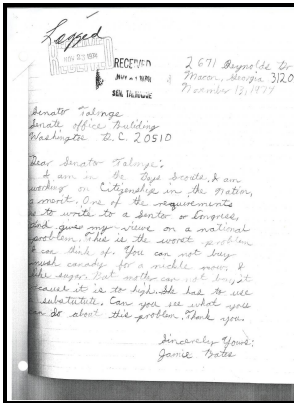 Logged
NOV 23 1974
RECEIVED
NOV 21 1974
SEN. TALMADGE
2671 Reynolds Dr
Macon, Georgia 3120
November 13, 1974
Senator Talmge
Senate office Building
Washington D.C. 20510
Dear Senator Talmge:
I am in the Boys Scouts. I am
working on Citizenship in the Nation,
a merit. One of the requirements
is to write to a Sentor or Congress,
and give my views on a national
problem. This is the worst problem
I can think of. You can not buy
much candy for a nickle now, &
the sugar. But mother can not buy it
because it is to high. She has to use
a substatute. Can you see what you
can do about this problem. Thank you.
Sincerely Yours:
Jamie Bates